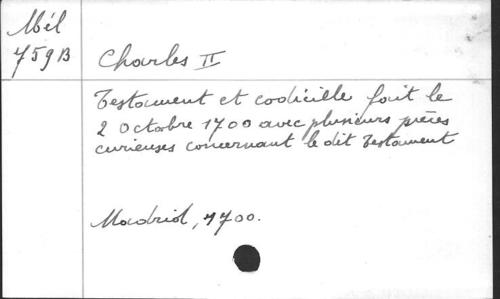 Mél
759 B
Charles II
Testament et codicille fait le
2 Octobre 1700 avec plusieurs pièces
curieuses concernant le dit Testament
Madrid, 1700.